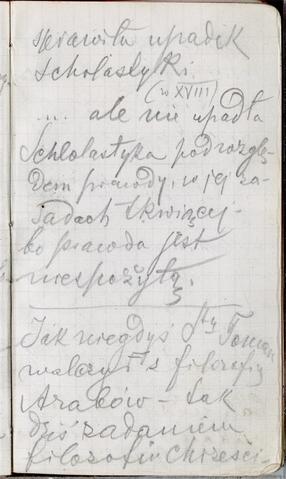 sprawiła upadek
scholastyki.
(w XVIII)
.... ale nie upadła
Schlolastyka pod wzglę-
dem prawdy, w jej za-
sadach tkwiącej-
bo prawda jest
niespożytą.
Jak niegdyś Sty Tomasz
walczył z filozofią
Arabów - tak
dziś zadaniem
filozofii chrześci-